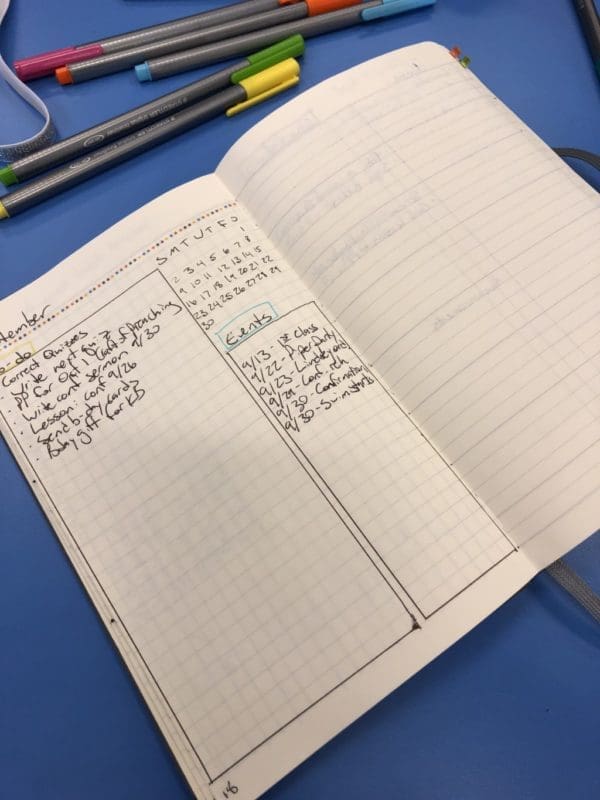 tember
S M T W T F S
1
2 3 4 5 6 7 8
9 10 11 12 13 14 15
16 17 18 19 20 21 22
23 24 25 26 27 28 29
30
o-do
Correct Quizzes
· Write next quiz
· PP for Oct 1 of Preaching
· Write conf sermon 9/30
· Lesson: conf 9/26
· Send b-day
· Baby gift for KB
Events
9/13 - 1st class
9/22 - Party
9/23 -
9/29 - Conf. reh
9/30 - Confirmation
9/30 - Swim starts
18